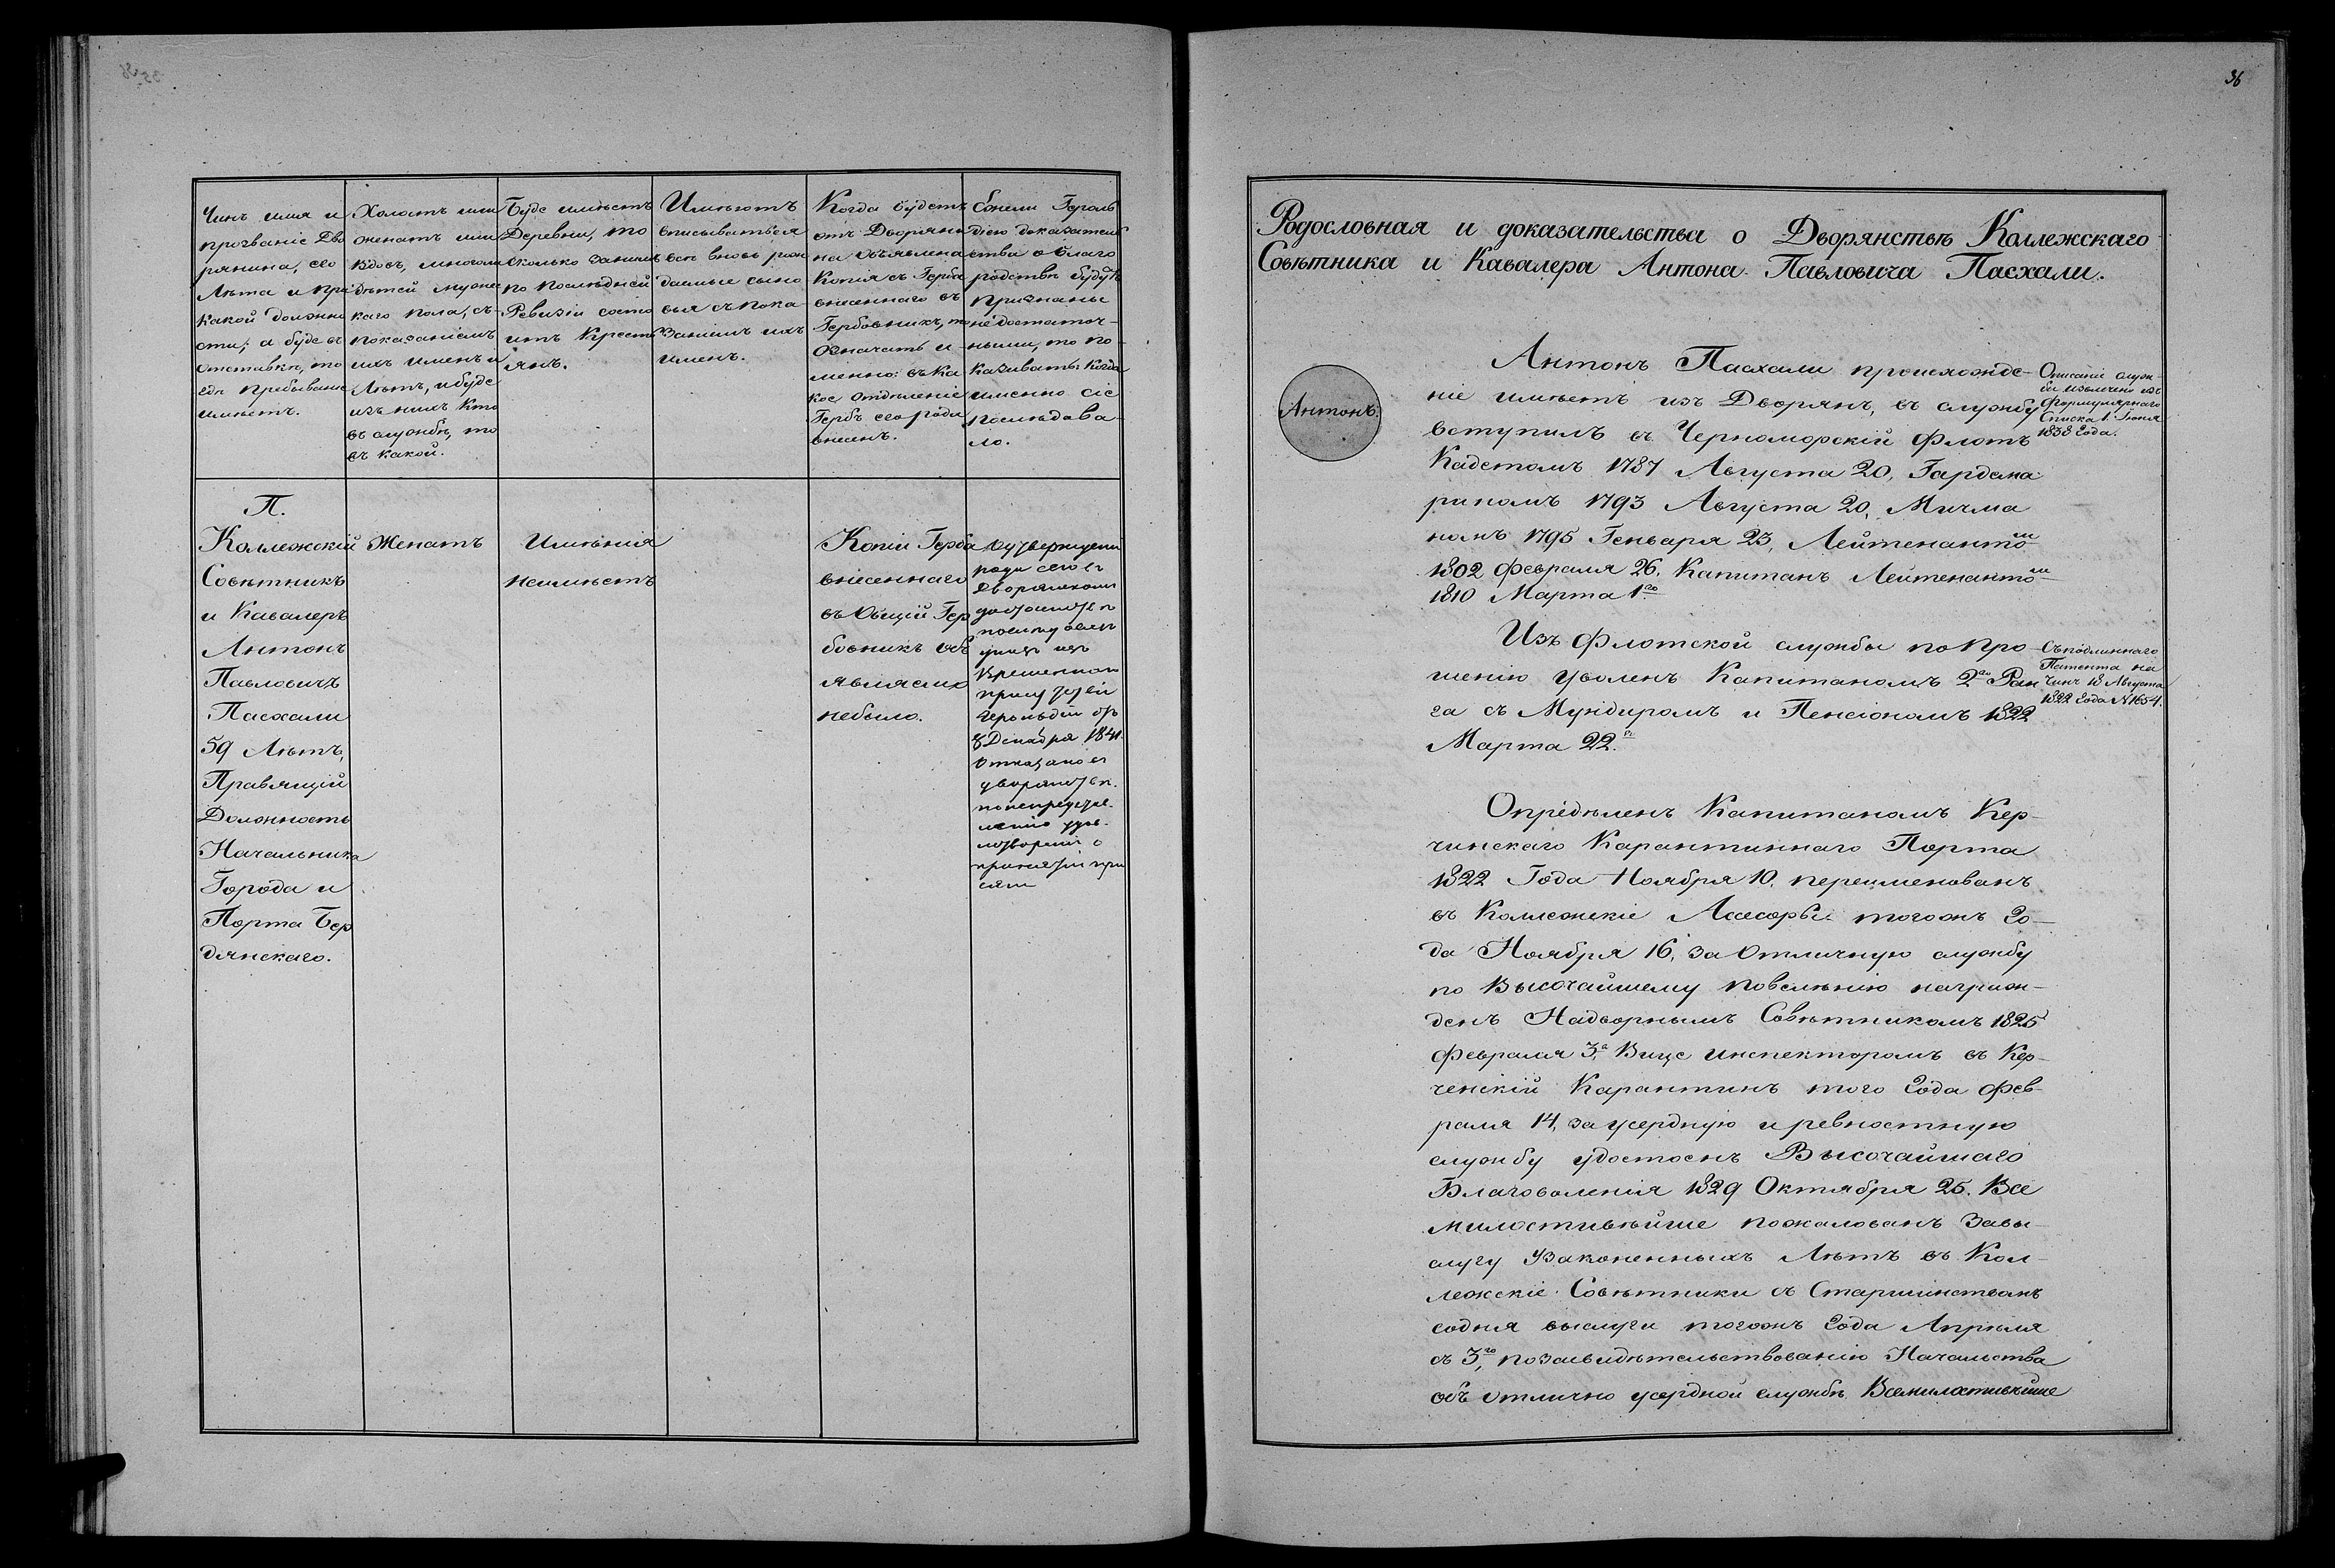 Чинъ имя и
прозваніе Дво
рянина, его
Лѣта и при
какой должно
сти; а буде въ
отставкѣ, то
гдѣ пребываніе
имѣетъ.
Холостъ или
женатъ или
вдовъ, многоли
дѣтей мужес
каго пола, съ
показаніемъ
ихъ именъ и
Лѣтъ, и буде
изъ нихъ кто
въ службѣ, то
въ какой.
Буде имѣетъ
Деревни, то
сколько занимъ
по послѣдней
Ревизіи состо
итъ Кресть
янъ.
Имѣютъ
вписываться
всѣ вновь рож
даемые сыно
вья съ пока
заніемъ ихъ
именъ.
Когда будетъ
отъ Дворяни
на объявлена
Копія съ Герба
внесеннаго въ
Гербовникъ, то
означать и
менно: въ Ка
кое отдѣленіе
Гербъ его рода
внесенъ.
Ежели Героль
діею доказатель
ства о благо
родствѣ будутъ
признаны
недостаточ-
ными, то по-
казывать когда
именно сіе
послѣдова-
ло.
П.
Коллежскій
Совѣтникъ
и Кавалеръ
Антонъ
Павловичъ
Пасхали
59 Лѣтъ,
Правящій
Должность
Начальника
Города и
Порта Бер
дянскаго.
Женатъ
Имѣнія
неимѣетъ
Копіи Герба
внесеннаго
въ Общій Гер
бовникъ объ
являемо
небыло.
рода сего въ
Дворянскомъ
достоинствѣ
Временнымъ
присутствіи
Герольдіи отъ
8 Декабря 1841.
отказано въ
дворянствѣ.
понепредстав-
36
Родословная и доказательства о Дворянствѣ Коллежскаго
Совѣтника и Кавалера Антона Павловича Пасхали.
Антонъ.
Антонъ Пасхали происхожде-
ніе имѣетъ изъ Дворянъ, въ службу
вступилъ въ Черноморскій Флотъ
Кадетомъ 1787 Августа 20, Гардема
риномъ 1793 Августа 20, Мичма
номъ 1795 Генваря 23, Лейтенантомъ
1802 Февраля 26, Капитанъ Лейтенантомъ
1810 Марта 1го
Описаніе служ-
бы извлечено изъ
Формулярнаго
Списка 1. Іюня
1838 Года.
Изъ Флотской службы по про-
шенію уволенъ Капитаномъ 2го Ран
га съ Мундиромъ и Пенсіономъ 1822
Марта 22.
Съ подлиннаго
Патента на
Чинъ 18 Августа
1822 Года № 1654.
Опредѣленъ Капитаномъ Кер-
чинскаго Карантиннаго Порта
1822 Года Ноября 10, переименованъ
въ Коллежскіе Асесоры тогожъ Го-
да Ноября 16, за отличную службу
по Высочайшему повелѣнію награж-
денъ Надворнымъ Совѣтникомъ 1825
Февраля 3, Вице инспекторомъ въ Кер-
ченскій Карантинъ того Года Фев-
раля 14, за усердную и ревностную
службу удостоенъ Высочайшаго
Благоволенія 1829 Октября 25. Все
милостивѣйше пожалованъ завы-
слугу Узаконенныхъ Лѣтъ въ Кол-
лежскіе Совѣтники съ Старшинствомъ
содня выслуги тогожъ Года Апрѣля
съ 3го, позасвидѣтельствованію Начальства
объ отлично усердной службѣ Всемилостивѣйше